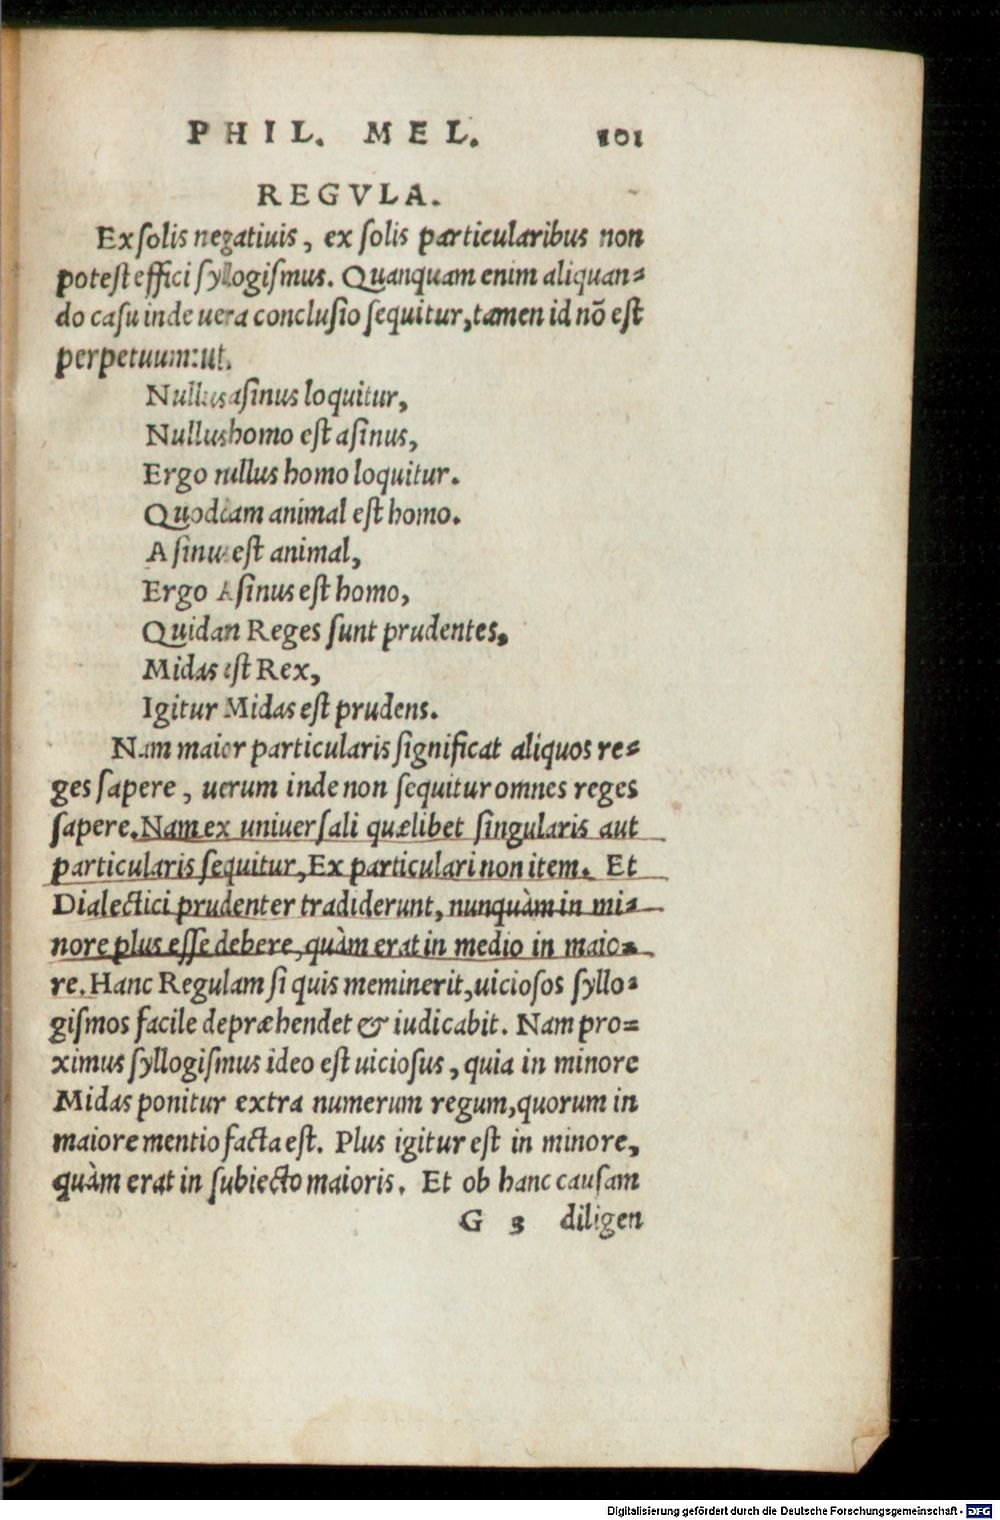 PHIL. MEL. 101
REGVLA.
Ex ſolis negatiuis, ex ſolis particularibus non
poteſt effici ſyllogiſmus. Quanquam enim aliquan-
do caſu inde uera concluſio ſequitur, tamen id nõ eſt
perpetuum: ut.
Nullus aſinus loquitur,
Nullus homo eſt aſinus,
Ergo nullus homo loquitur.
Quoddam animal eſt homo.
Aſinus eſt animal,
Ergo Aſinus eſt homo,
Quidan Reges ſunt prudentes,
Midas eſt Rex,
Igitur Midas eſt prudens.
Nam maior particularis ſignificat aliquos re-
ges ſapere, uerum inde non ſequitur omnes reges
ſapere. Nam ex uniuerſali quælibet ſingularis aut
particularis ſequitur, Ex particulari non item. Et
Dialectici prudenter tradiderunt, nunquàm in mi-
nore plus eſſe debere, quàm erat in medio in maio-
re. Hanc Regulam ſi quis meminerit, uicioſos ſyllo-
giſmos facile depræhendet & iudicabit. Nam pro-
ximus ſyllogiſmus ideo eſt uicioſus, quia in minore
Midas ponitur extra numerum regum, quorum in
maiore mentio facta eſt. Plus igitur eſt in minore,
quàm erat in ſubiecto maioris. Et ob hanc cauſam
G 3 diligen
Digitalisierung gefördert durch die Deutsche Forschungsgemeinschaft - DFG